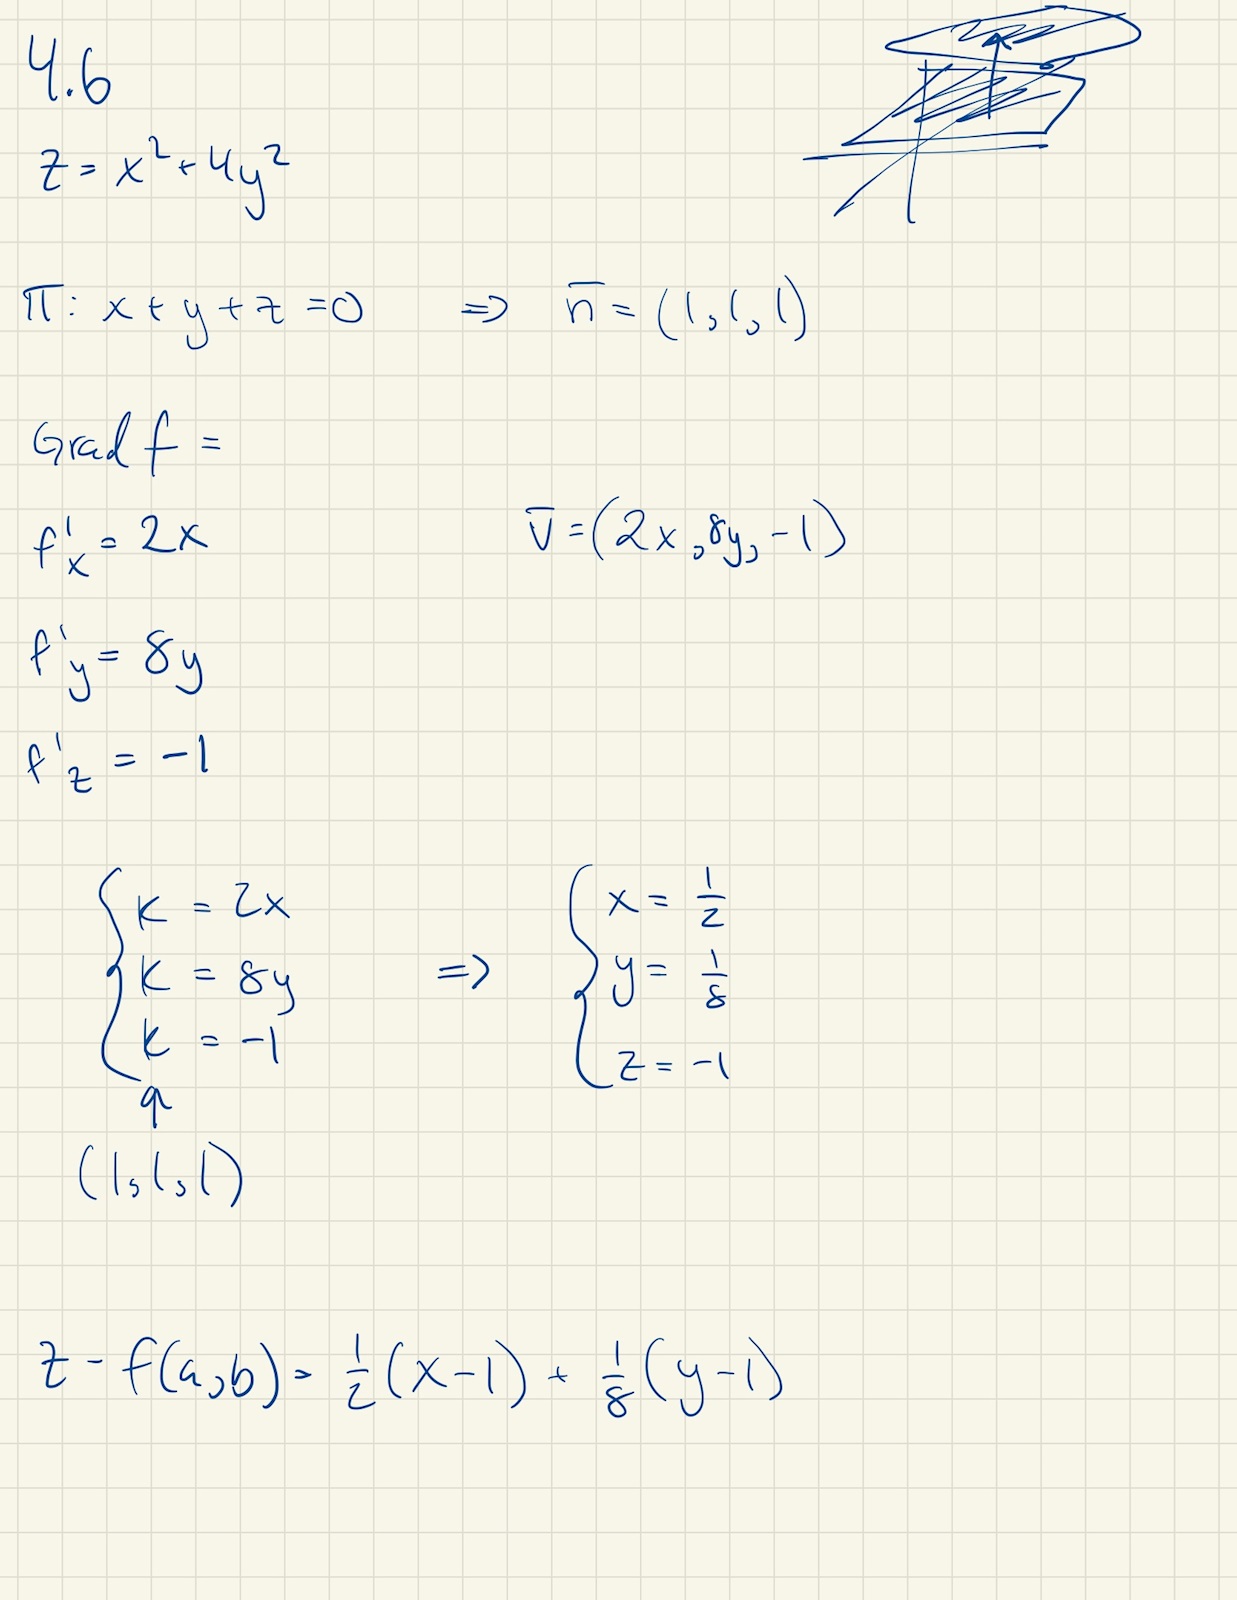 4.6
z = x² + 4y²
π: x + y + z = 0 ⇒ n̄ = (1, 1, 1)
Grad f =
f'x = 2x v̄ = (2x, 8y, -1)
f'y = 8y
f'z = -1
{ k = 2x ⇒ { x = 1/2
k = 8y y = 1/8
k = -1 z = -1
(1, 1, 1)
z - f(a, b) = 1/2 (x - 1) + 1/8 (y - 1)